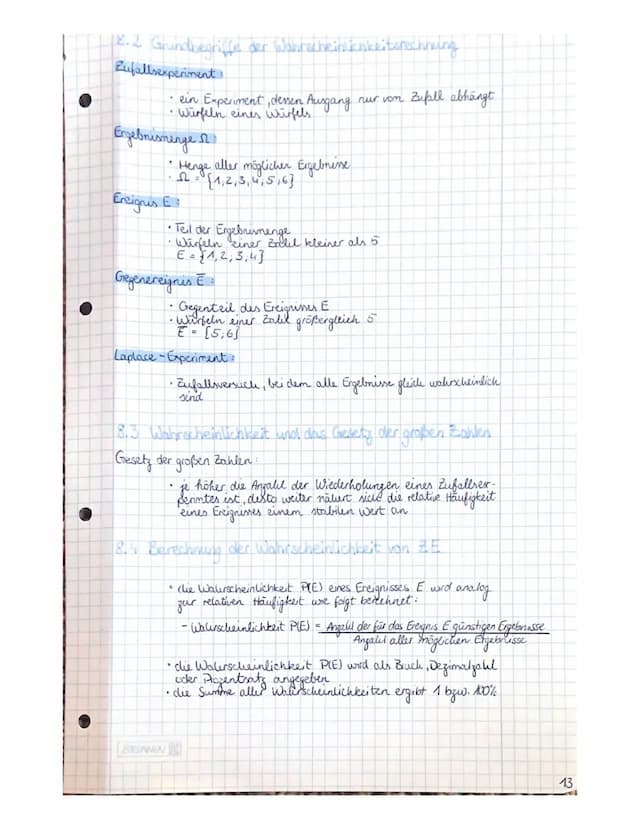 8.2 Grundbegriffe der Wahrscheinlichkeitsrechnung
Zufallsexperiment:
· ein Experiment, dessen Ausgang nur vom Zufall abhängt
· Würfeln eines Würfels
Ergebnismenge Ω:
· Menge aller möglichen Ergebnisse
· Ω = {1,2,3,4,5,6}
Ereignis E:
· Teil der Ergebnismenge
· Würfeln einer Zahl kleiner als 5
E = {1,2,3,4}
Gegenereignis E̅:
· Gegenteil des Ereignisses E
· Würfeln einer Zahl größergleich 5
E̅ = {5,6}
Laplace-Experiment:
· Zufallsversuch, bei dem alle Ergebnisse gleich wahrscheinlich
sind
8.3 Wahrscheinlichkeit und das Gesetz der großen Zahlen
Gesetz der großen Zahlen:
· je höher die Anzahl der Wiederholungen eines Zufallsex-
perimtes ist, desto weiter nähert sich die relative Häufigkeit
eines Ereignisses einem stabilen Wert an
8.4 Berechnung der Wahrscheinlichkeit von ZE
· die Wahrscheinlichkeit P(E) eines Ereignisses E wird analog
zur relativen Häufigkeit wie folgt berechnet:
- Wahrscheinlichkeit P(E) = Anzahl der für das Ereignis E günstigen Ergebnisse
Anzahl aller möglichen Ergebnisse
· die Wahrscheinlichkeit P(E) wird als Bruch, Dezimalzahl
oder Prozentsatz angegeben
· die Summe aller Wahrscheinlichkeiten ergibt 1 bzw. 100%
BRUNNEN
13